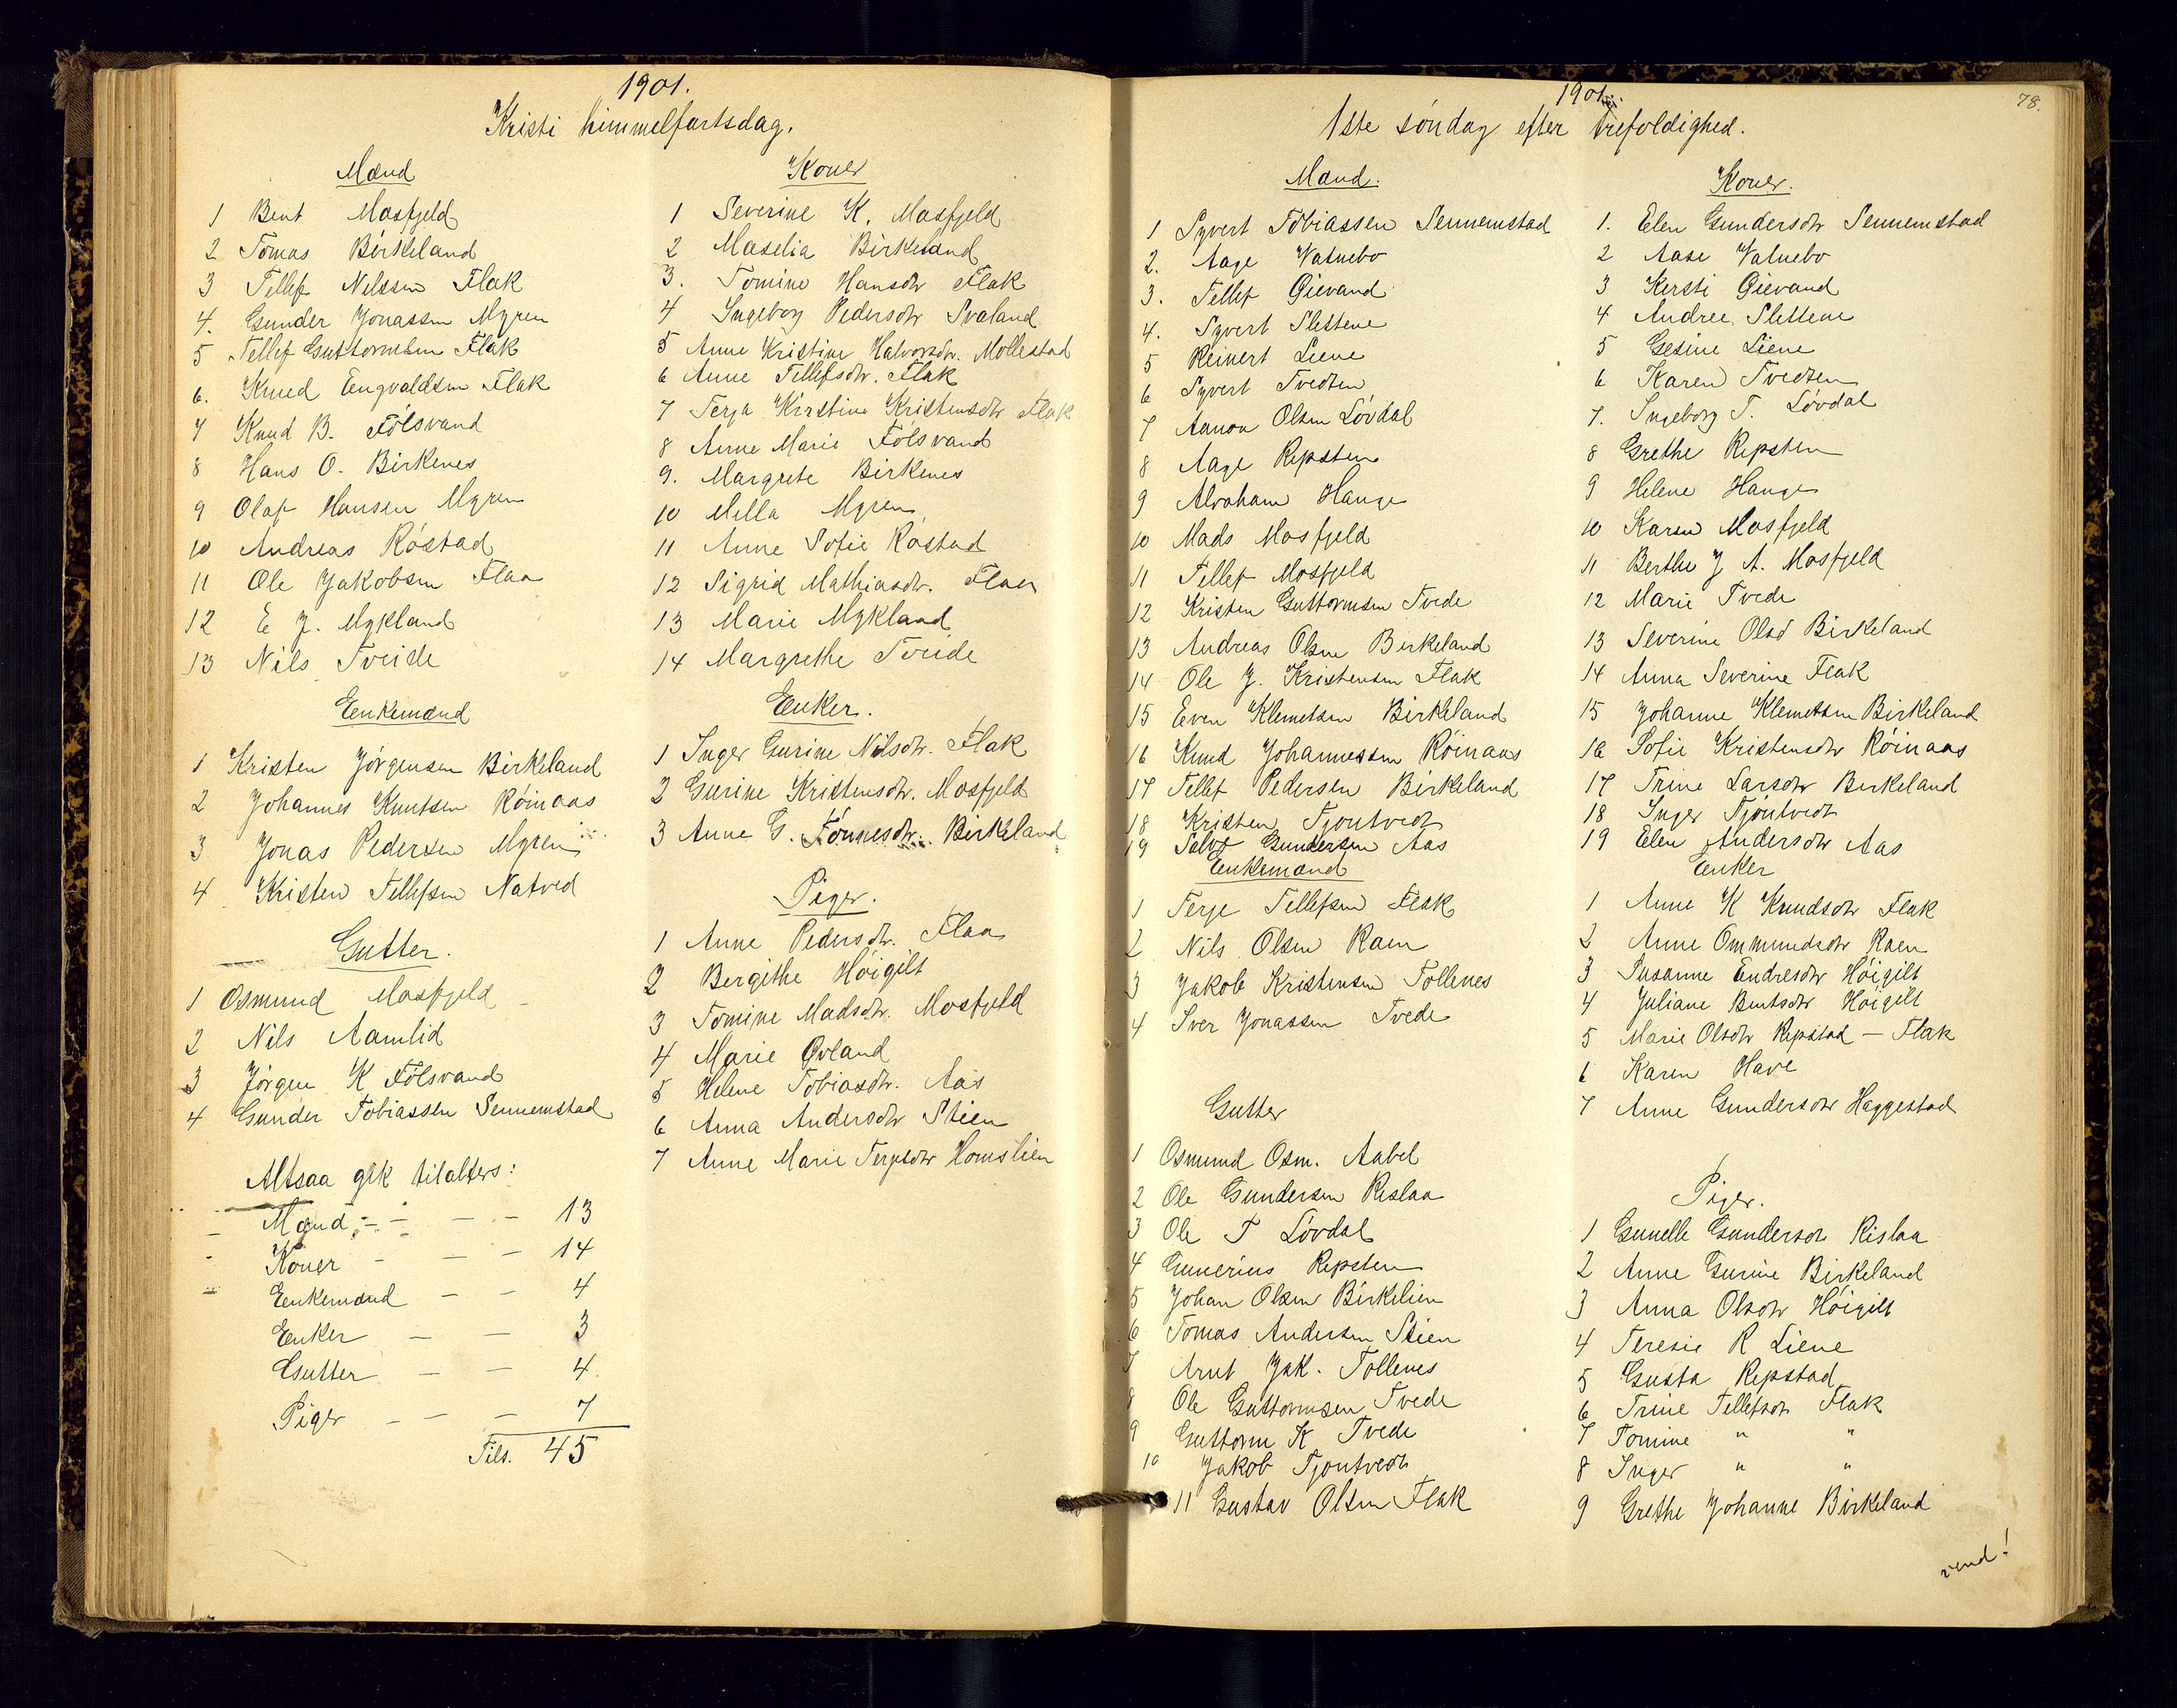 1901.
Kristi himmelfartsdag.
Mænd
1 Bent Mosfjeld
2 Tomas Birkeland
3 Tellef Nilssen Flak
4. Gunder Jonassen Myren
5 Tellef Guttormsen Flak
6. Knud Engvaldsen Flak
7 Knud B. Fölsvand
8 Hans O. Birkenes
9 Olaf Hansen Myren
10 Andreas Röstad
11 Ole Jakobsen Flaa
12 E J. Mykland
13 Nils Tveide
Enkemænd
1 Kristen Jörgensen Birkeland
2 Johannes Knutsen Röinaas
3 Jonas Pedersen Myren
4 Kristen Tellefsen Natved
Gutter.
1 Osmund Mosfjeld
2 Nils Aamlid
3 Jörgen K Fölsvand
4 Gunder Tobiassen Sennemstad
Altsaa gik tilalters:
Mænd - - - - 13
Koner - - - 14
Enkemænd - - 4
Enker - - 3
Gutter - - 4
Piger - - - 7
Tils. 45
Koner
1 Severine K. Mosfjeld
2 Maselia Birkeland
3. Tomine Hansdtr Flak
4 Ingeborg Pedersdtr Svaland
5 Anne Kristine Halvorsdtr. Mollestad
6 Anne Tellefsdtr. Flak
7 Terja Kirstine Kristensdtr Flak
8 Anne Marie Fölsvand
9. Margrete Birkenes
10 Milla Myren
11 Anne Sofie Röstad
12 Sigrid Mathiasdtr. Flaa
13 Marie Mykland
14 Margrethe Tveide
Enker.
1 Inger Gurine Nilsdtr. Flak
2 Gurine Kristensdtr. Mosfjeld
3 Anne G. Tönnesdtr. Birkeland
Piger.
1 Anne Pedersdtr. Flaa
2 Bergithe Höigilt
3 Tomine Madsdtr. Mosfjeld
4 Marie Øvland
5 Helene Tobiasdtr. Aas
6 Anna Andersdtr Stien
7 Anne Marie Terjesdtr Homslien
78.
1901.
1ste söndag efter trefoldighed.
Mænd.
1 Syvert Tobiassen Sennemstad
2. Aage Vatnebo
3. Tellef Gievand
4. Syvert Slettene
5 Reinert Liene
6 Syvert Tvedten
7 Aanon Olsen Lövdal
8 Aage Repsten
9 Abraham Hauge
10 Mads Mosfjeld
11 Tellef Mosfjeld
12 Kristen Guttormsen Tvede
13 Andreas Olsen Birkeland
14 Ole J. Kristensen Flak
15 Even Klemetsen Birkeland
16 Knud Johannessen Röinaas
17 Tellef Pedersen Birkeland
18 Kristen Tjöntvedt
19 Salve Gundersen Aas
Enkemænd
1 Terje Tellefsen Flak
2 Nils Olsen Raen
3 Jakob Kristensen Tollenes
4 Iver Jonassen Tvede
Gutter
1 Osmund Osm. Aabel
2 Ole Gundersen Rislaa
3 Ole T Lövdal
4 Gunerius Repsten
5 Johan Olsen Birkelien
6 Tomas Andersen Stien
7 Arnt Jak. Tollenes
8 Ole Guttormsen Tvede
9 Guttorm K Tvede
10 Jakob Tjöntvedt
11 Gustav Olsen Flak
Koner.
1. Elen Gundersdtr Sennemstad
2 Aase Vatnebo
3 Kersti Gievand
4 Andree Slettene
5 Gesine Liene
6 Karen Tvedten
7. Ingeborg T. Lövdal
8 Grethe Repsten
9 Helene Hauge
10 Karen Mosfjeld
11 Berthe J A. Mosfjeld
12 Marie Tvede
13 Severine Olsd Birkeland
14 Anna Severine Flak
15 Johanne Klemetsen Birkeland
16 Sofie Kristensdtr Röinaas
17 Trine Larsdtr Birkeland
18 Inger Tjöntvedt
19 Elen Andersdtr Aas
Enker
1 Anne K Knudsdtr Flak
2 Anne Ommundsdtr Raen
3 Susanne Endresdtr Höigilt
4 Juliane Bentsdtr Höigilt
5 Marie Olsdtr Repstad - Flak
6 Karen Have
7 Anne Gundersdtr Haggestad
Piger.
1 Gunelle Gundersdtr Rislaa
2 Anne Gurine Birkeland
3 Anna Olsdtr Höigilt
4 Teresie R Liene
5 Gusta Repstad
6 Trine Tellefsdtr Flak
7 Tomine " "
8 Inger " "
9 Grethe Johanne Birkeland
vend!